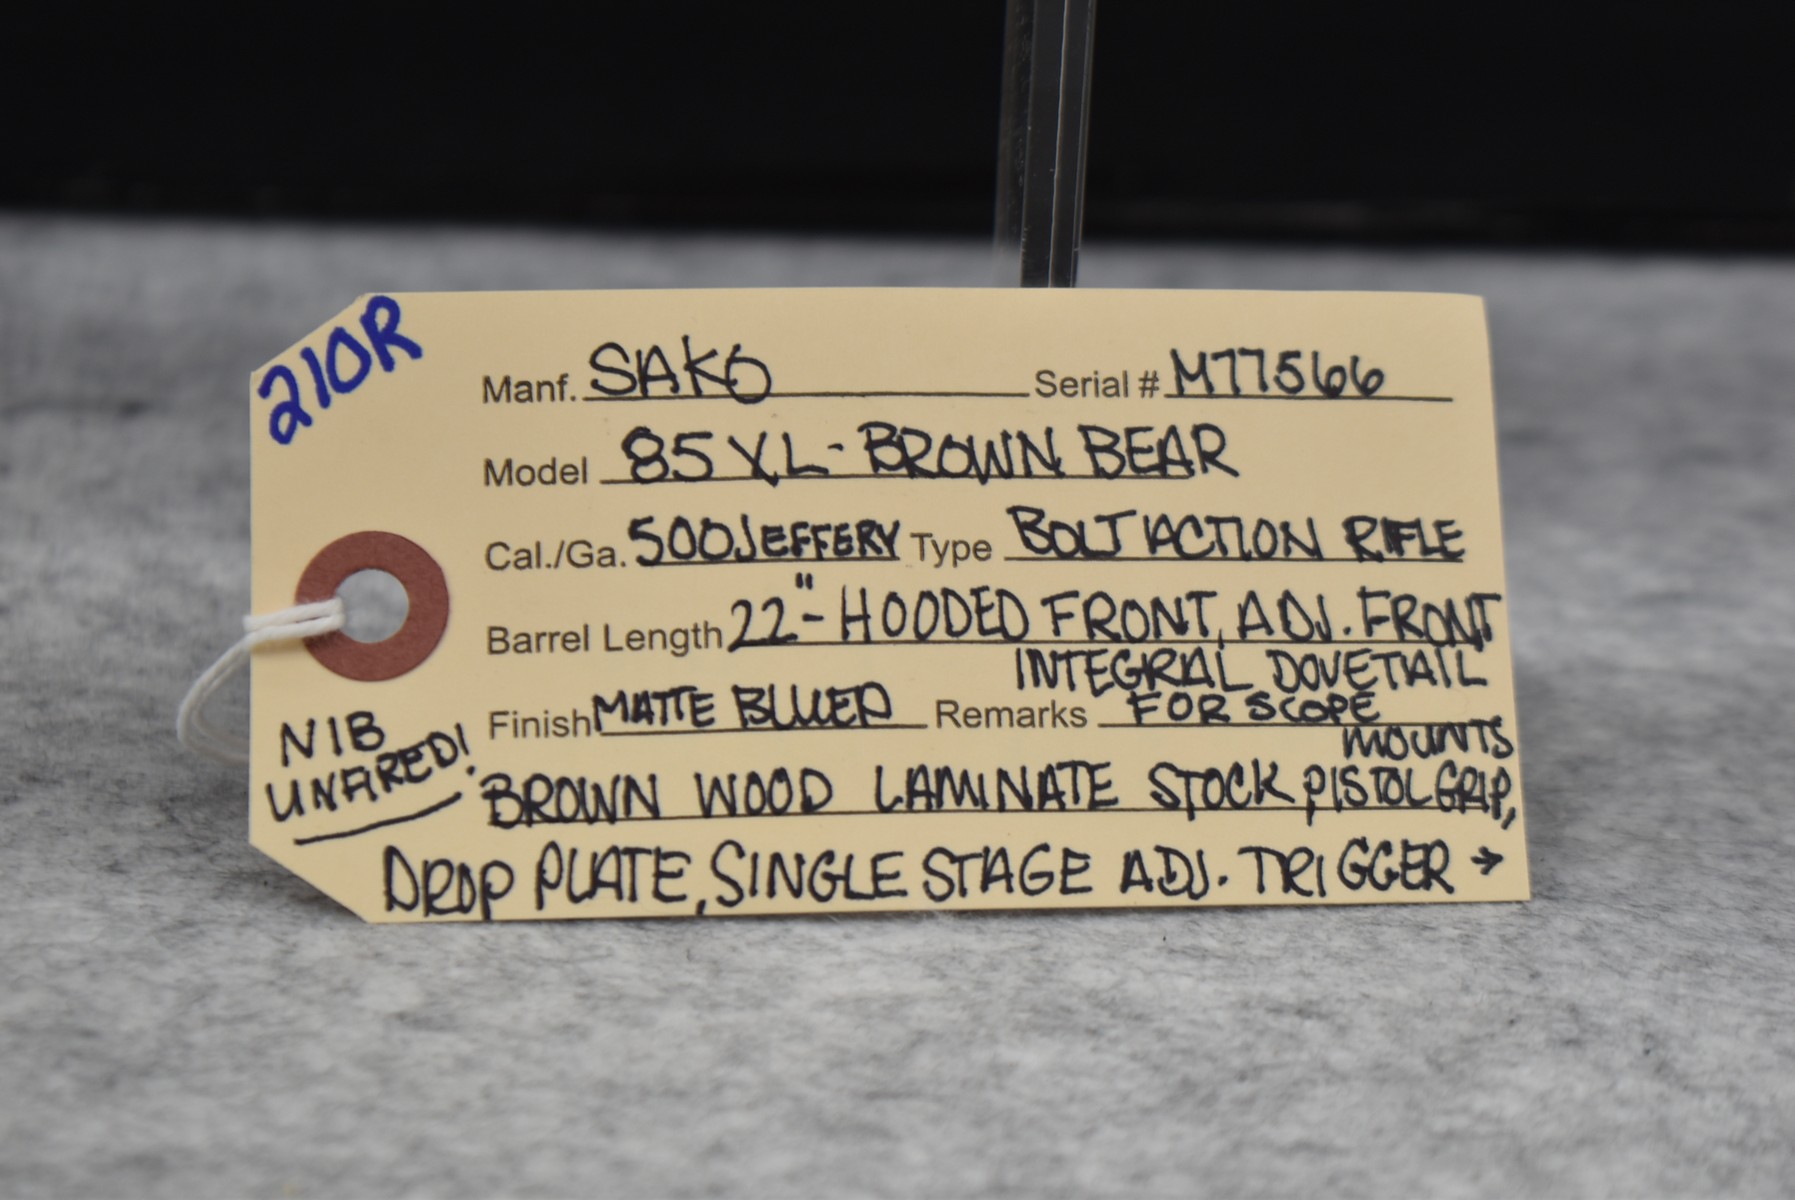 210R
Manf. SAKO Serial # M77566
Model 85 XL - BROWN BEAR
Cal./Ga. 500 JEFFERY Type BOLT ACTION RIFLE
Barrel Length 22" - HOODED FRONT, ADJ. FRONT
INTEGRAL DOVETAIL
Finish MATTE BLUED Remarks FOR SCOPE
MOUNTS
NIB
UNFIRED!
BROWN WOOD LAMINATE STOCK, PISTOL GRIP,
DROP PLATE, SINGLE STAGE ADJ. TRIGGER →